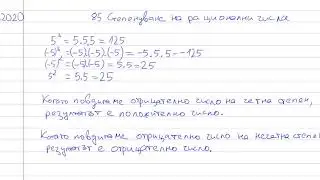 2020
85 Степенуване на рационални числа
5³ = 5.5.5 = 125
(-5)³ = (-5).(-5).(-5) = -5.5.5 = -125
(-5)² = (-5).(-5) = 5.5 = 25
5² = 5.5 = 25
Когато повдигаме отрицателно число на четна степен,
резултатът е положително число.
Когато повдигаме отрицателно число на нечетна степен
резултатът е отрицателно число.